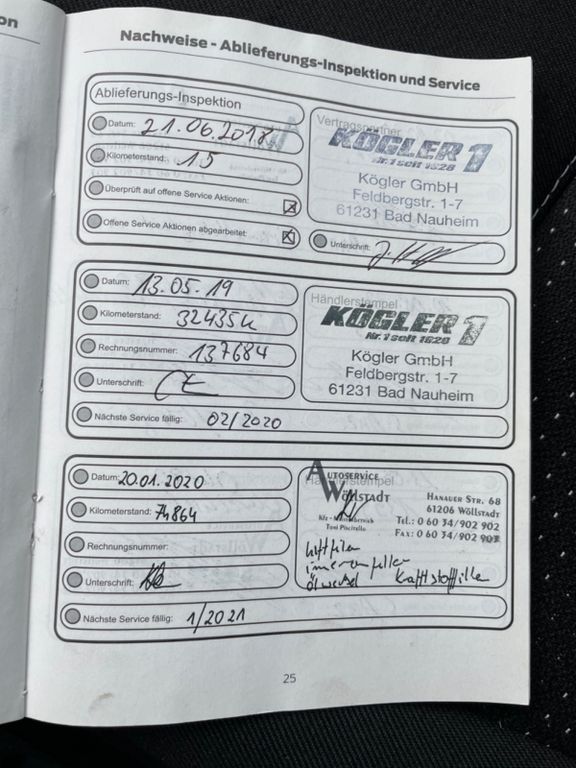 on
Nachweise - Ablieferungs-Inspektion und Service
Ablieferungs-Inspektion
Datum: 21.06.2018
Kilometerstand: 15
Überprüft auf offene Service Aktionen:
Offene Service Aktionen abgearbeitet:
Vertragspartner
KÖGLER 1
Nr. 1 seit 1628
Kögler GmbH
Feldbergstr. 1-7
61231 Bad Nauheim
Unterschrift:
Datum: 13.05.19
Kilometerstand: 32435k
Rechnungsnummer: 137684
Unterschrift:
Nächste Service fällig: 02/2020
Händlerstempel
KÖGLER 1
Nr. 1 seit 1628
Kögler GmbH
Feldbergstr. 1-7
61231 Bad Nauheim
Datum: 20.01.2020
Kilometerstand: 74864
Rechnungsnummer:
Unterschrift:
Nächste Service fällig: 1/2021
Händlerstempel
AUTOSERVICE
WÖLLSTADT
Kfz - Meisterbetrieb
Toni Piscitello
HANAUER STR. 68
61206 WÖLLSTADT
TEL.: 0 60 34/902 902
FAX: 0 60 34/902 903
Luftfilter
innenraumfilter
Ölwechsel Kraftstofffilter
25